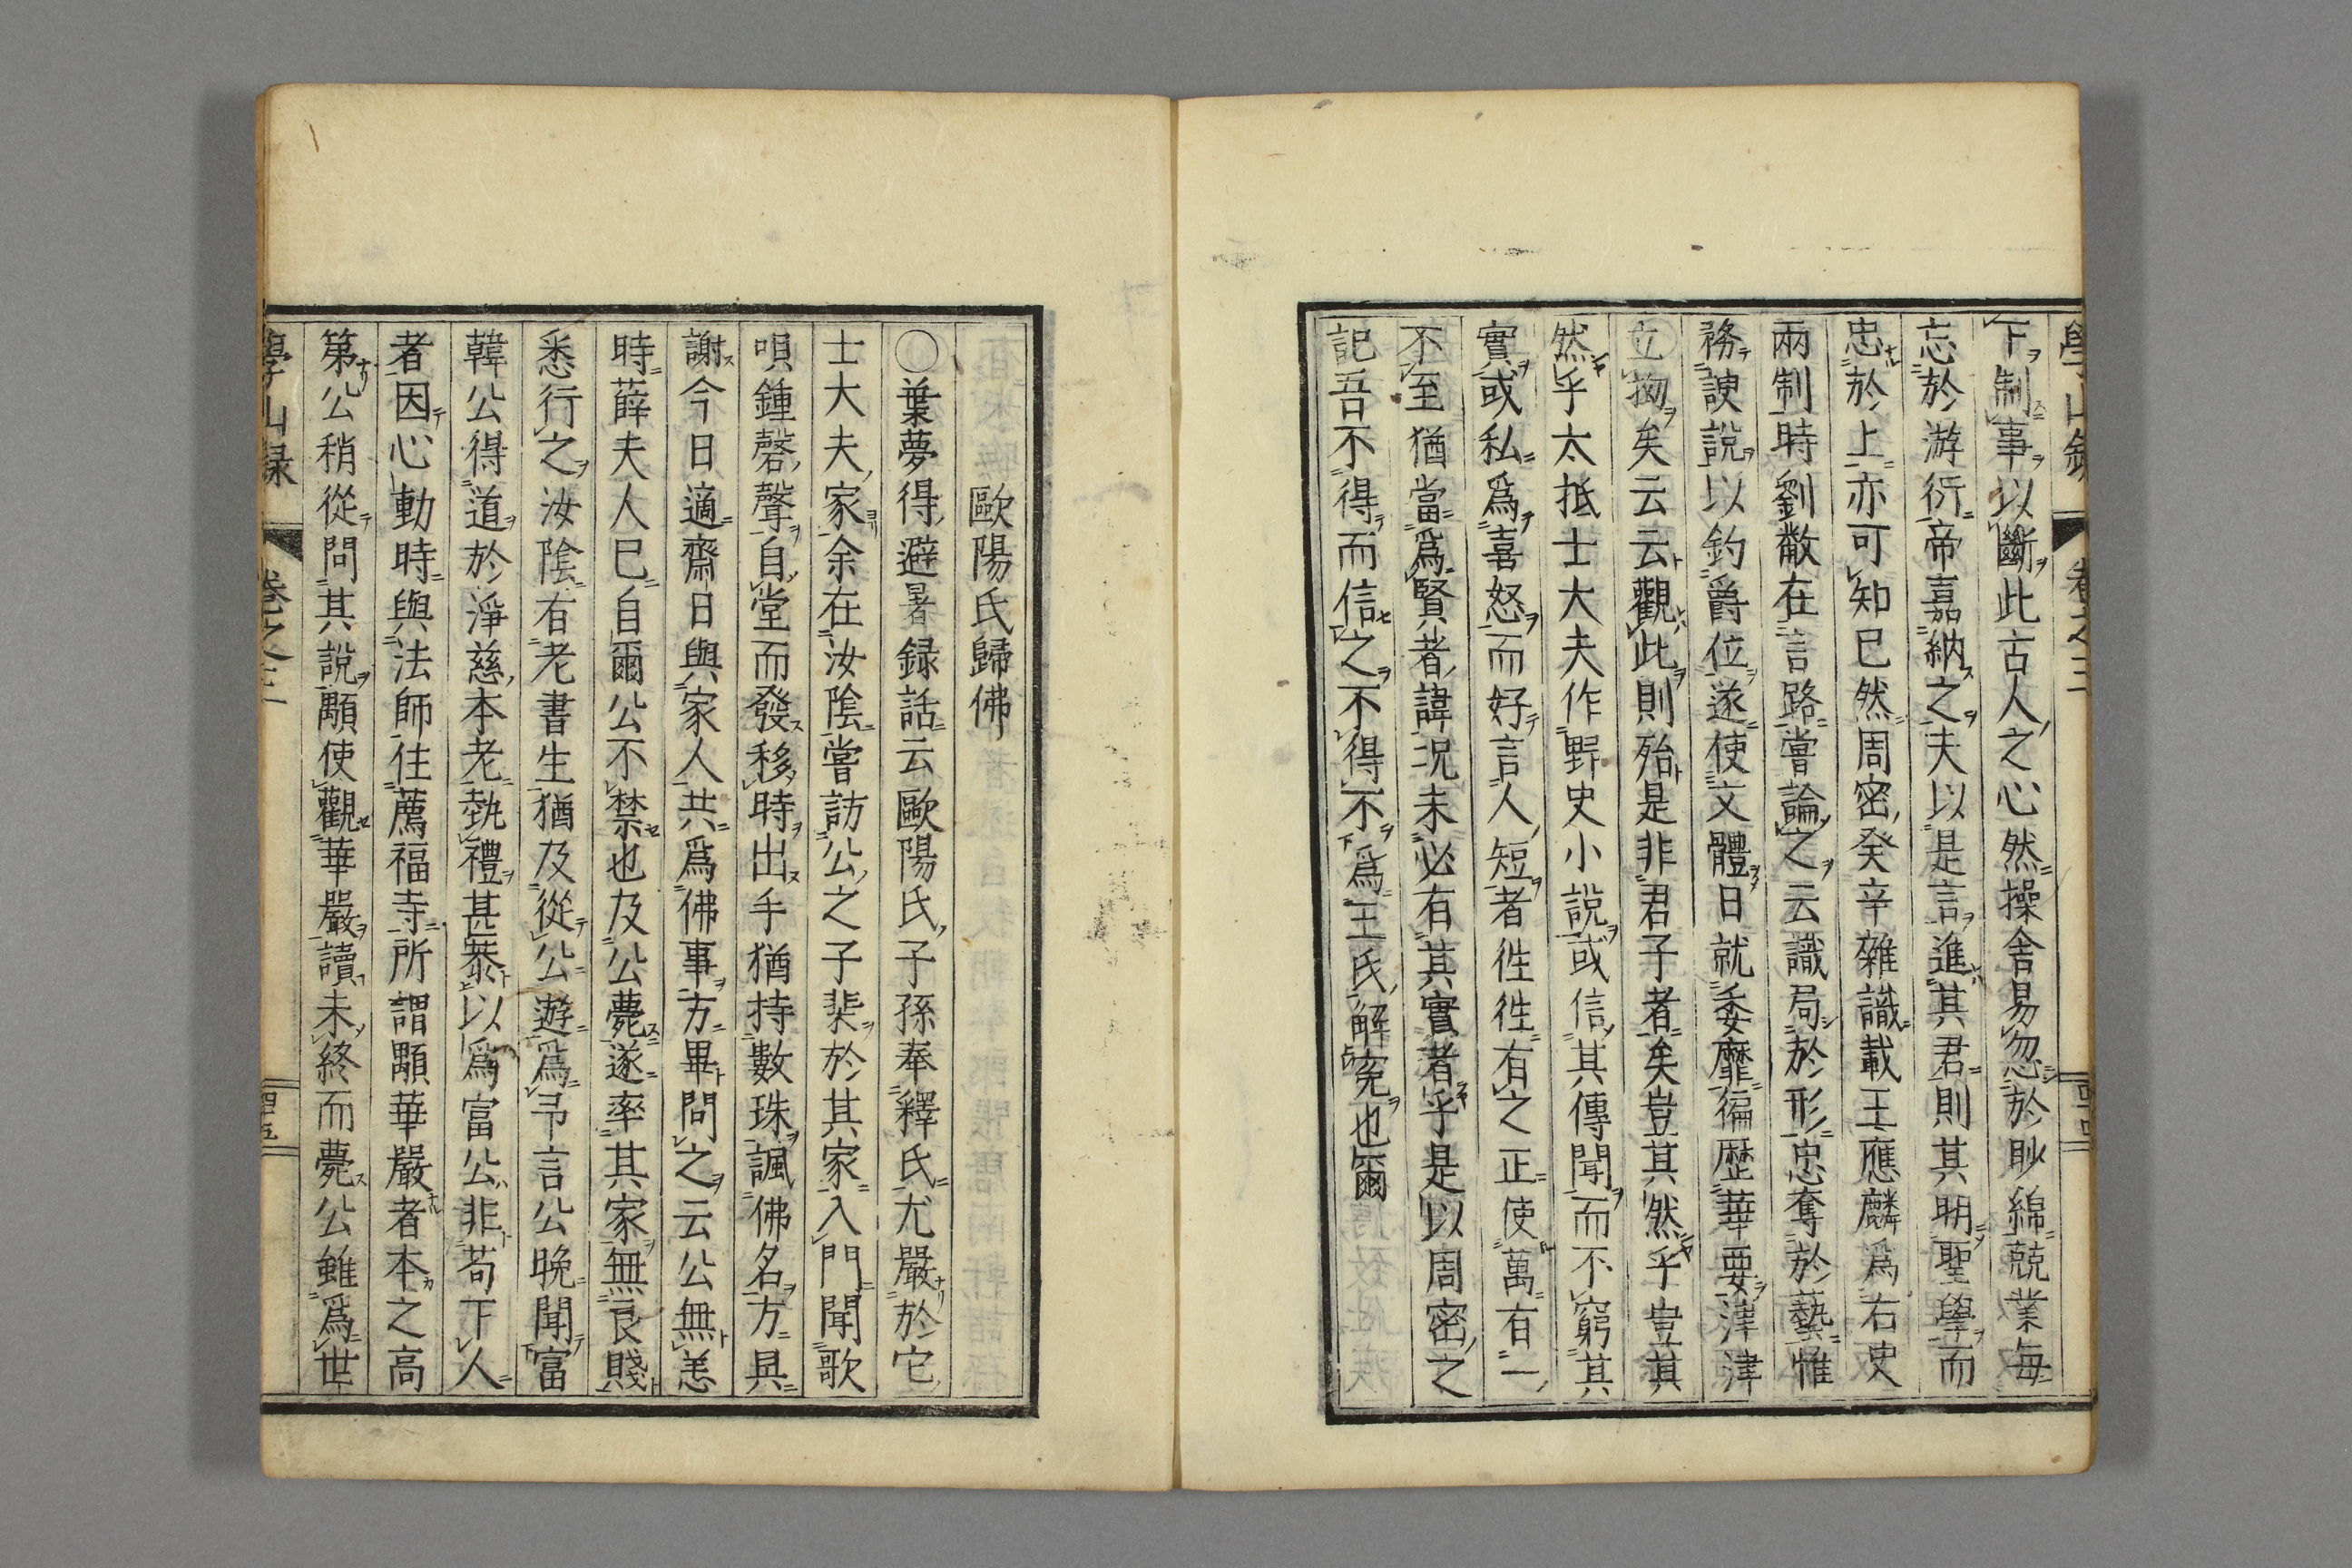 學山録 卷之三
下制事以斷此古人之心然操舍易忽於眇綿兢業每
忘於游衍帝嘉納之夫以是言進其君則其明聖學而
忠於上亦可知已然周密癸辛雜識載王應麟爲右史
兩制時劉黻在言路嘗論之云識局於形忠奪於藝惟
務諛說以釣爵位遂使文體日就委靡徧歷華要津津
立拗矣云云觀此則殆是非君子者矣豈其然乎豈其
然乎太抵士大夫作野史小說或信其傳聞而不窮其
實或私爲喜怒而好言人短者徃徃有之正使萬有一
不至猶當爲賢者諱况未必有其實者乎是以周密之
記吾不得而信之不得不爲王氏解寃也爾
歐陽氏歸佛
○葉夢得避暑録話云歐陽氏子孫奉釋氏尤嚴於它
士大夫家余在汝陰嘗訪公之子棐於其家入門聞歌
唄鍾磬聲自堂而發移時出手猶持數珠諷佛名方具
謝今日適齋日與家人共爲佛事方畢問之云公無恙
時薛夫人已自爾公不禁也及公薨遂率其家無良賤
悉行之汝陰有老書生猶及從公遊爲予言公晚聞富
韓公得道於淨慈本老執禮甚恭以爲富公非苟下人
者因心動時與法師住薦福寺所謂顒華嚴者本之高
第公稍從問其說顒使觀華嚴讀未終而薨公雖爲世
學山録 卷之三 四五